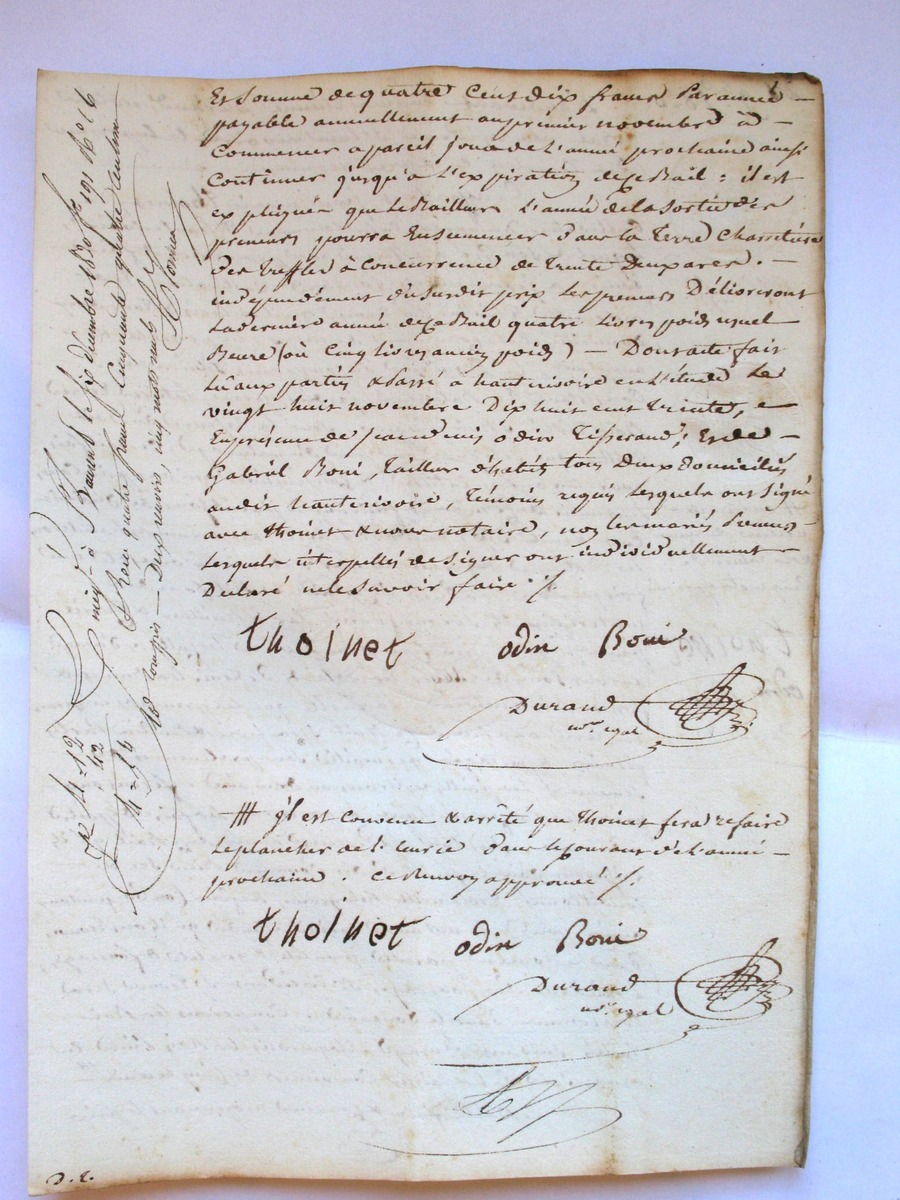 Et Somme de quatre Cent dix francs Par année —
payable annuellement au premier novembre à —
Commencer a pareil jour de L'année prochaine ainsi
Continuer jusqu'a L'expiration de ce Bail : il est
expliqué que Le Bailleur L'année de la Sortie des
preneurs pourra Ensemencer dans la Terre Charretière
des treffles à Concurrence de trente Deux ares. —
indépendément du Surdit prix Les preneurs Délivreront
La dernière année de ce Bail quatre Livres poids usuel
Beure (où Cinq Livres ancien poids) — Dont acte fait
Lû aux parties & Passé à hauterivoire en L'étude Le
vingt huit novembre Dix huit cent trente, e
En présence de jean denis odin Tisserand, Et de —
Gabriel Boni, Tailleur d'habits tous deux domiciliés
audit hauterivoire, Témoins requis Lesquels ont Signé
avec thoinet & nous notaire, non Les mariés Preneurs
Lesquels interpellés de Signer ont individuellement
Déclaré ne le Savoir faire ./.
thoinet odin Boni
Durand
nre. royal
# yl est Convenu & arrêté que thoinet fera refaire
Le plancher de L'Ecurie dans le Courant de L'année —
prochaine. Ce Renvoy approuvé ./.
thoinet odin Boni
Durand
nre. royal
D. E.
Enreg. à St Laurent le six décembre 1830 f° 191 R° C 6
Reçu quatre francs Cinquante quatre Centimes
10e Compris — Deux renvois, cinq mots nuls
4 - 12
42
4 - 54